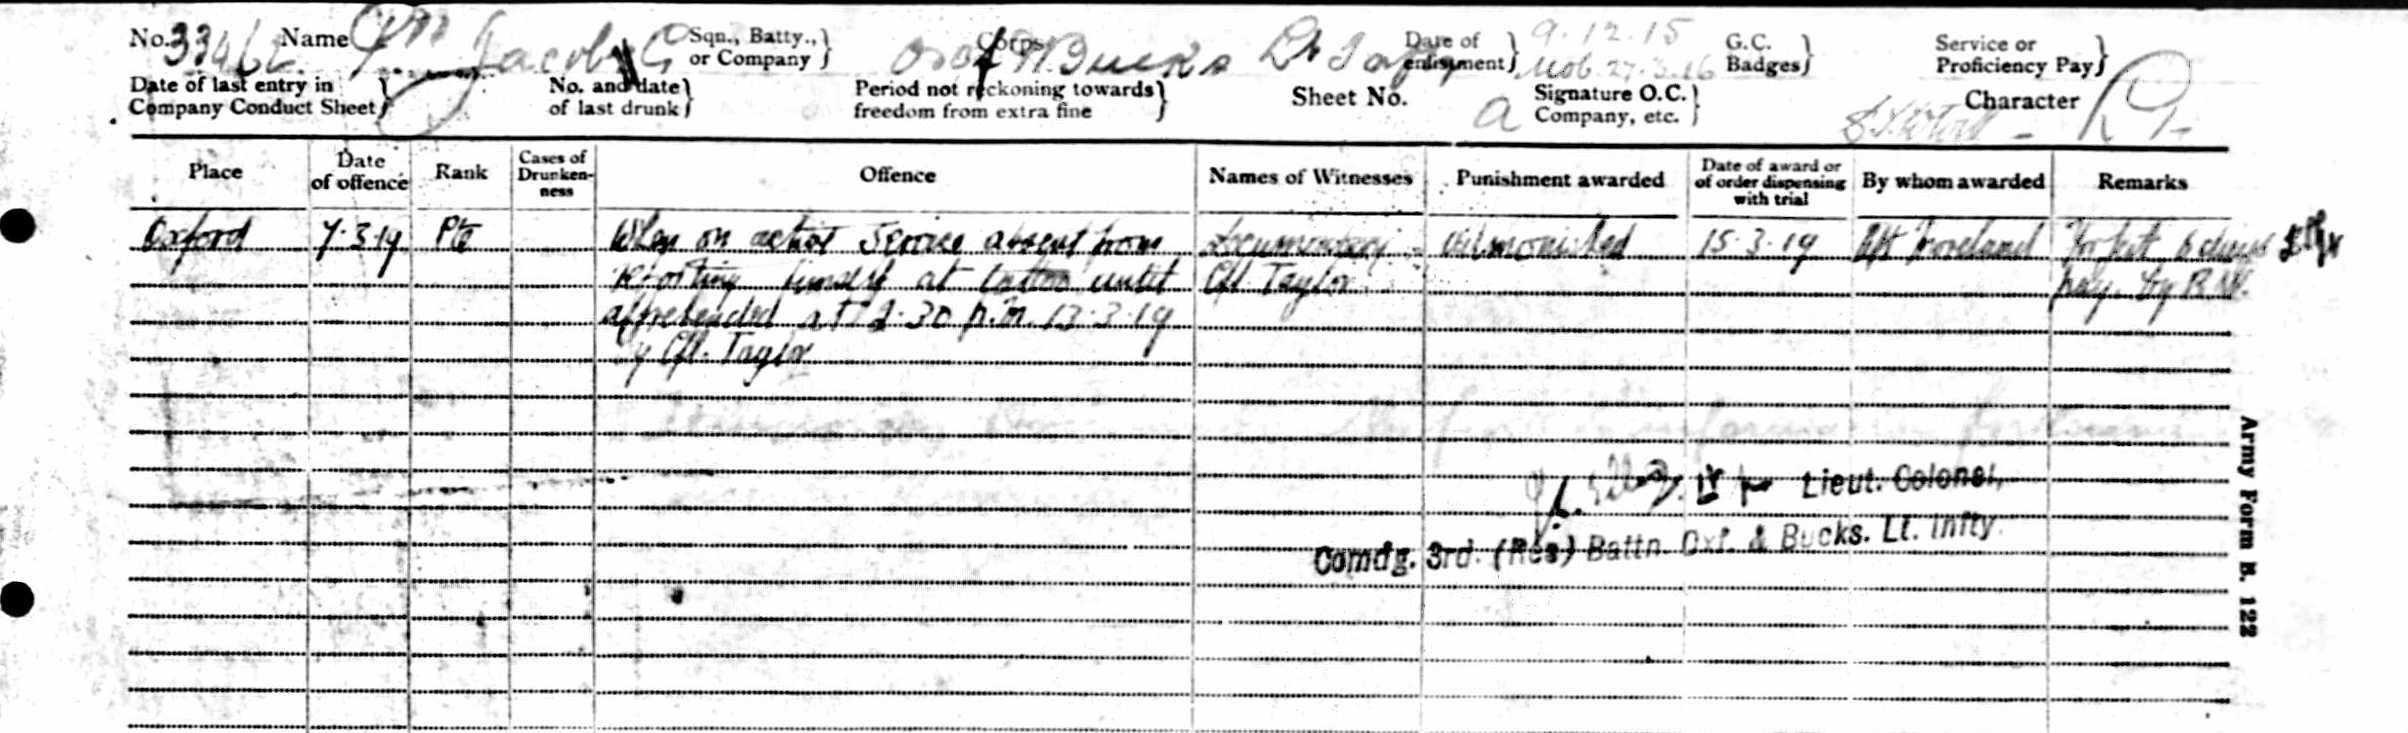 No. 33462 Name Jacobs G Sqn., Batty., or Company Corps Oxf & Bucks Lt Infy Date of enlistment 9.12.15 Mob. 27.3.16 G.C. Badges Service or Proficiency Pay
Date of last entry in Company Conduct Sheet No. and date of last drunk Period not reckoning towards freedom from extra fine Sheet No. Signature O.C. Company, etc. Character
Place Date of offence Rank Cases of Drunken-ness Offence Names of Witnesses Punishment awarded Date of award or of order dispensing with trial By whom awarded Remarks
Oxford 7.3.19 Pte When on active service absent from Documentary Admonished 15.3.19 Forfeit 6 days
reporting himself at tattoo until Cpl. Taylor pay by R.W.
apprehended at 2.30 p.m. 13.3.19
by Cpl. Taylor
Lt for Lieut. Colonel,
Comdg. 3rd. (Res) Battn Oxf. & Bucks. Lt. Infty.
Army Form B. 122